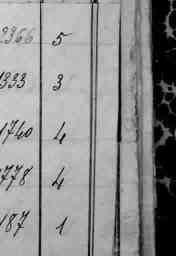 2366 5
1333 3
1740 4
1778 4
187 1